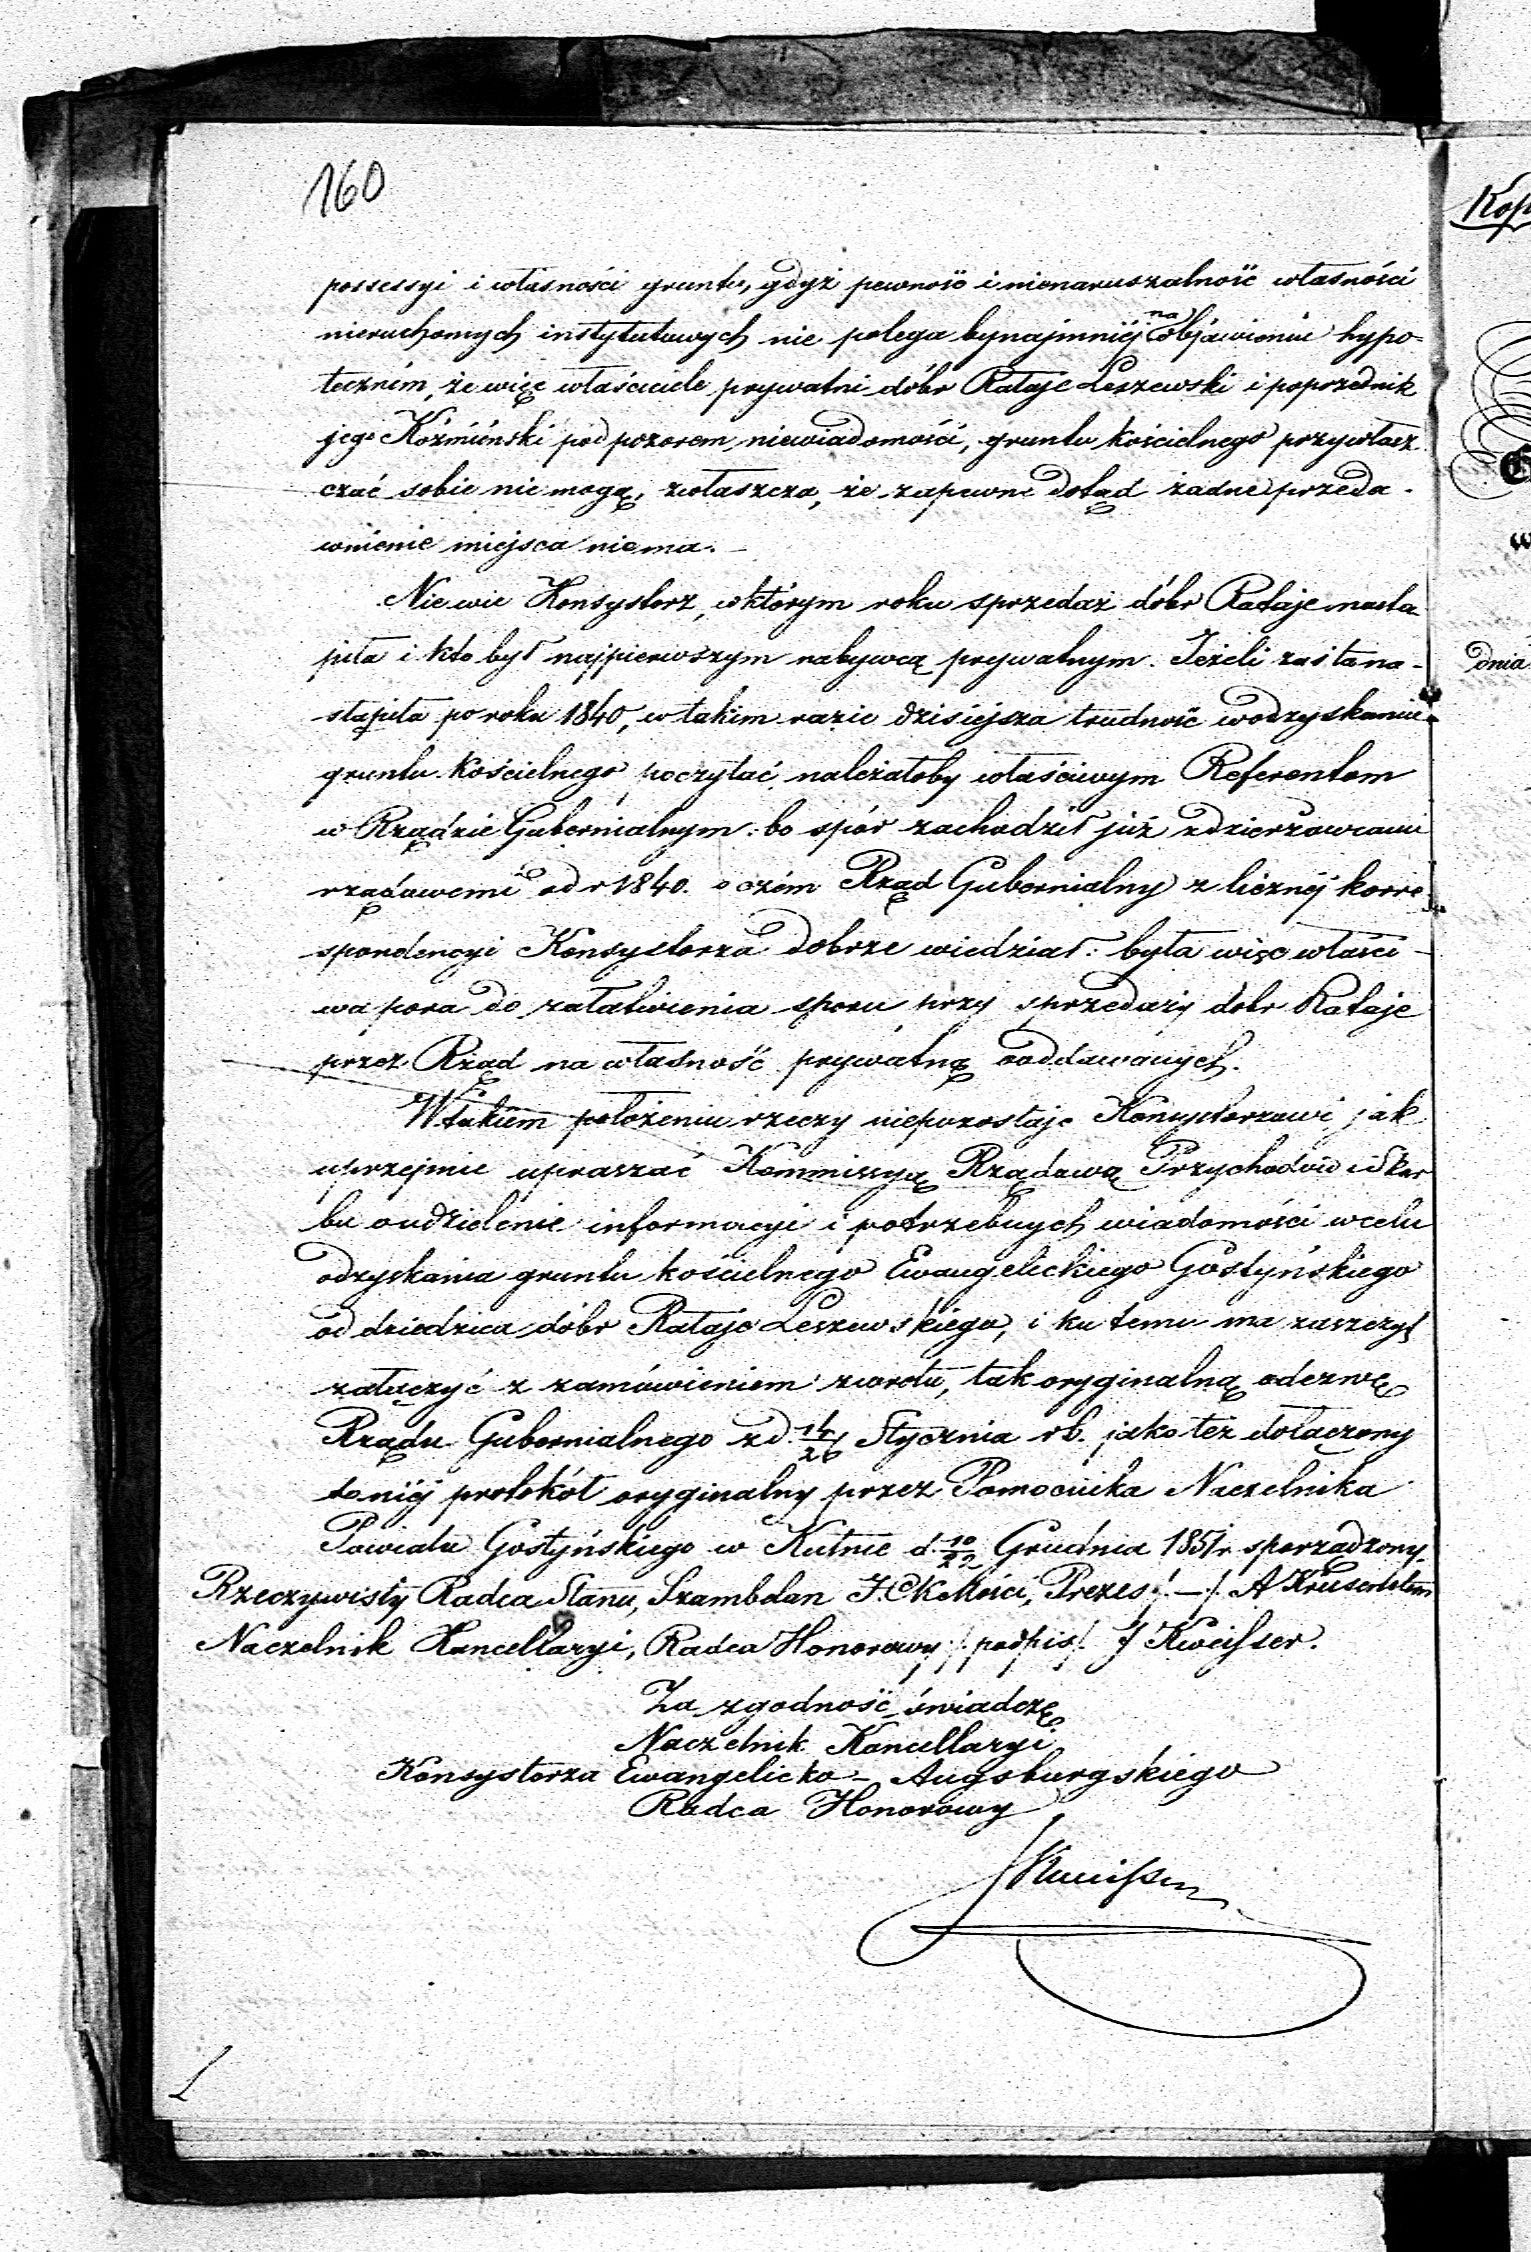 160
possessyi i własności gruntu, gdyż pewność i nienaruszalność własności
nieruchomych instytutowych nie polega bynajmniéj na objawieniu hypo-
teczném, że więc właściciele prywatni dóbr Rataje Leszewski i poprzednik
jego Koźmiński pod pozorem niewiadomości, gruntu kościelnego przywłasz
czać sobie nie mogą, zwłaszcza, że zapewne dotąd żadne przeda-
wnienie miejsca niema.
Nie wie Konsystorz, w którym roku sprzedaż dóbr Rataje nastą
piła i kto był najpierwszym nabywcą prywatnym. Jeżeli zaś ta na-
stąpiła po roku 1840, w takim razie dzisiejsza trudność w odzyskaniu
gruntu kościelnego, poczytać należałoby właściwym Referentom
w Rządzie Gubernialnym: bo spór zachodził już z dzierżawcami
rządowemi od r 1840. o czém Rząd Gubernialny z licznéj korre
spondencyi Konsystorza dobrze wiedział: była więc właści-
wa pora do załatwienia sporu przy sprzedaży dóbr Rataje
przez Rząd na własność prywatną oddawanych.
W takiem położeniu rzeczy niepozostaje Konsystorzowi jak
uprzejmie upraszać Kommissyą Rządową Przychodów i Skar
bu o udzielenie informacyi i potrzebnych wiadomości w celu
odzyskania gruntu kościelnego Ewangelickiego Gostyńskiego
od dziedzica dóbr Rataje Leszewskiego, i ku temu ma zaszczyt
załączyć z zamówieniem zwrotu, tak oryginalną odezwę
Rządu Gubernialnego z d. 14/26 Stycznia rb. jako też dołączony
do niéj protokół oryginalny przez Pomocnika Naczelnika
Powiatu Gostyńskiego w Kutnie d. 10/22 Grudnia 1851 r. sporządzony.
Rzeczywisty Radca Stanu, Szambelan J. C. K. Mości, Prezes /-/ A Krusenstern
Naczelnik Kancellaryi, Radca Honorowy /podpis/ J Kweisser.
Za zgodność świadczę
Naczelnik Kancellaryi
Konsystorza Ewangelicko-Augsburgskiego
Radca Honorowy
JKweisser
Kop
dnia